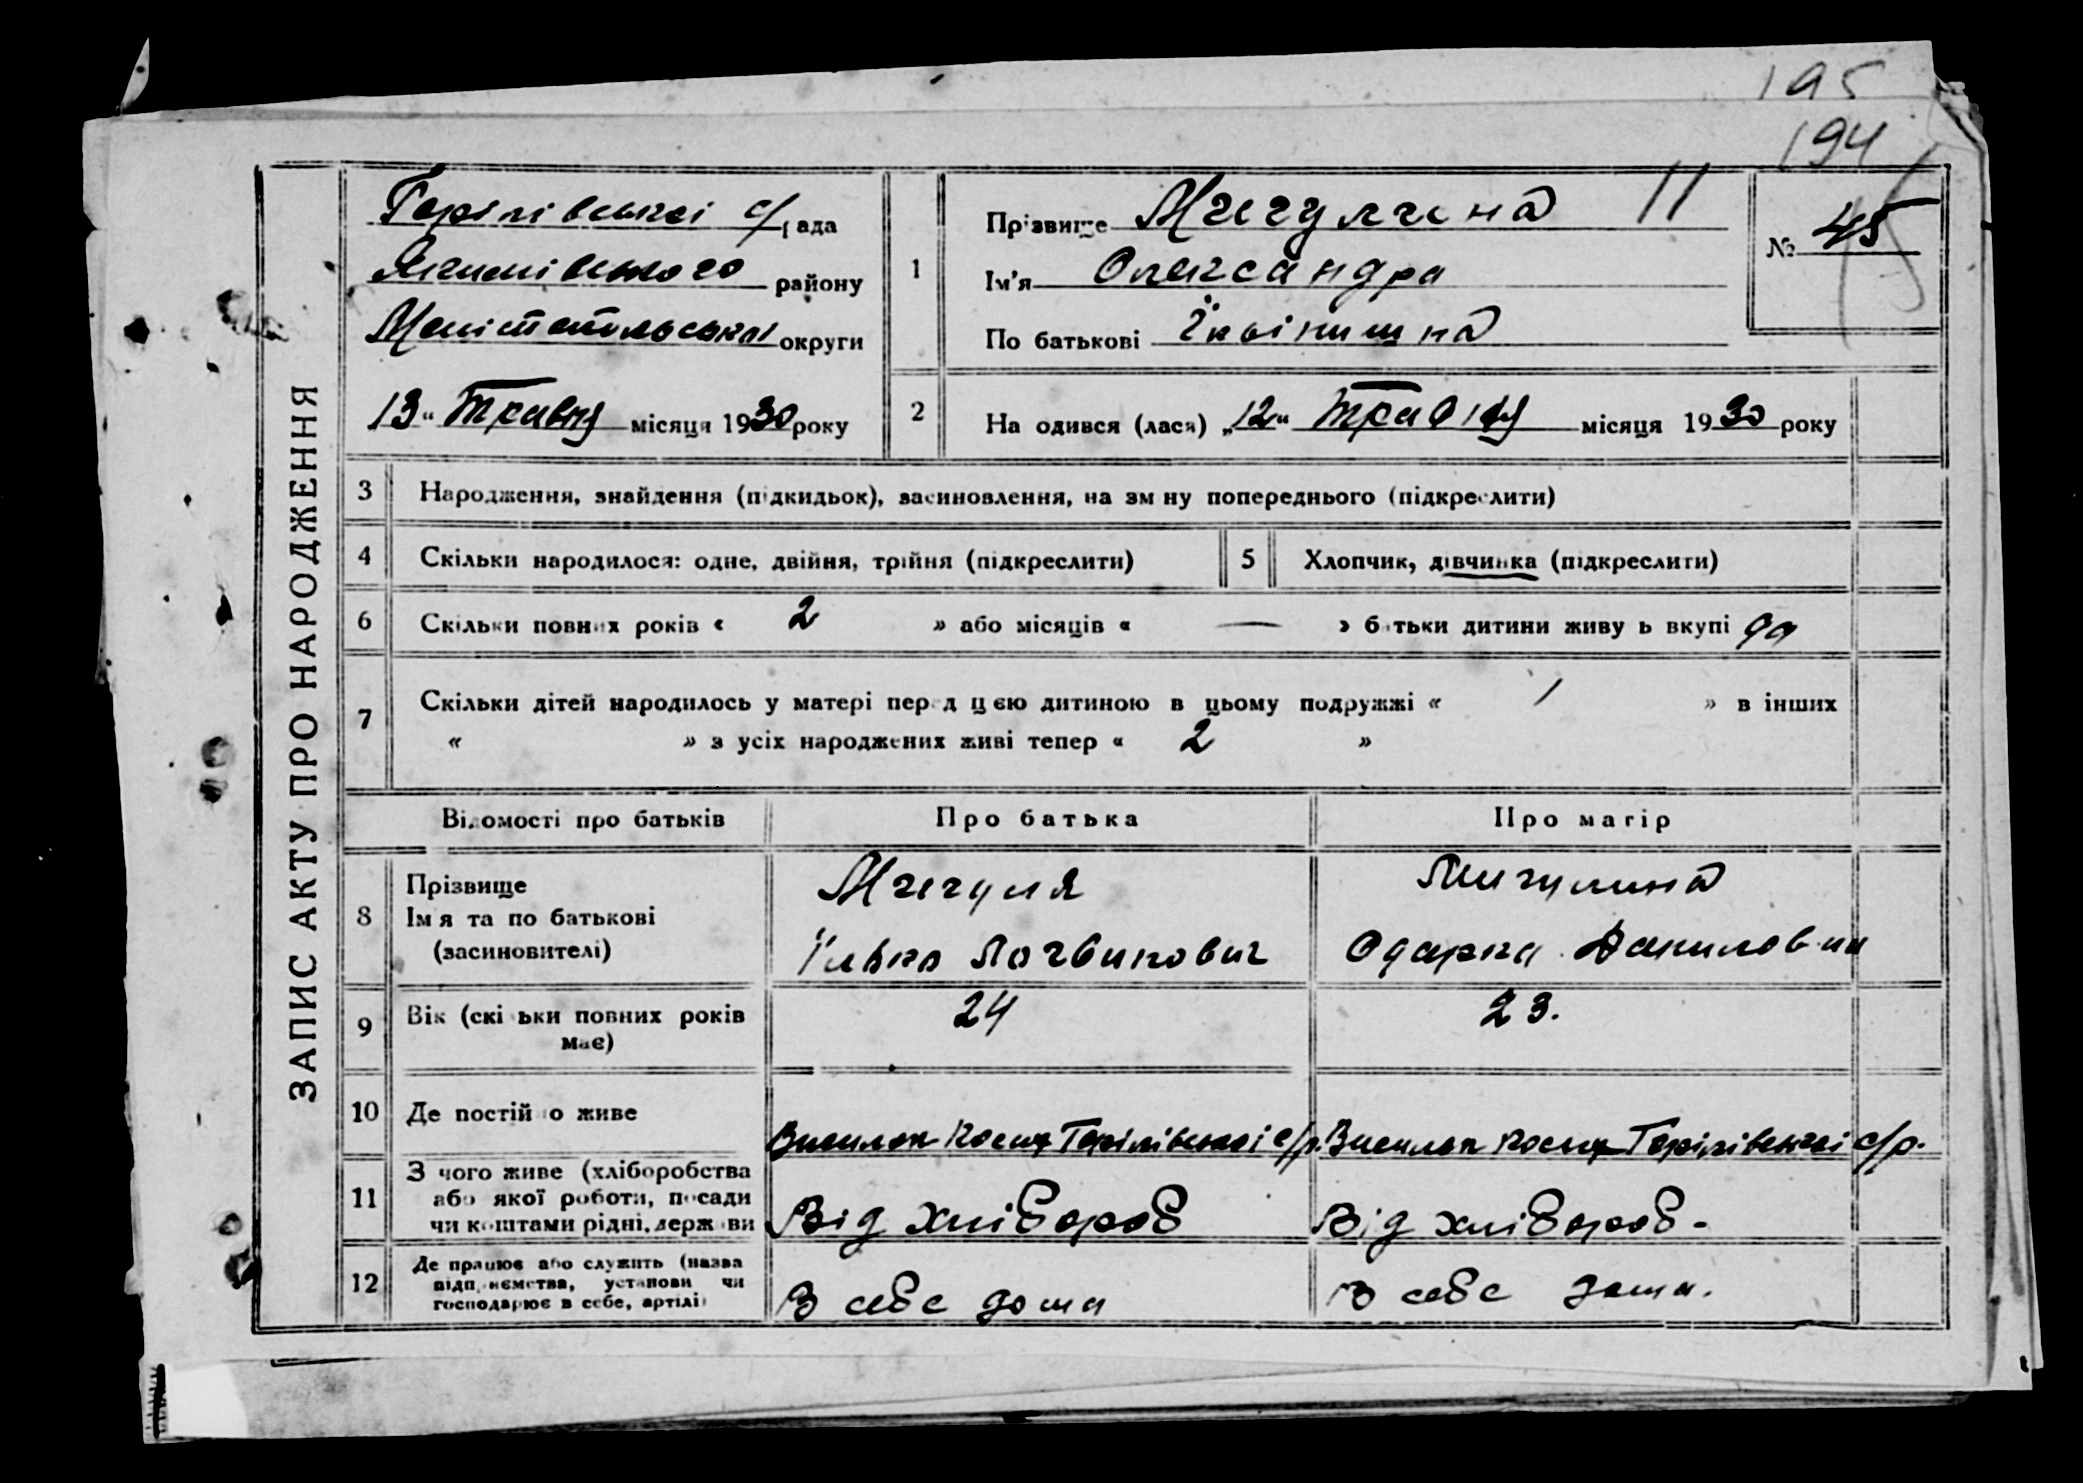 195
194
ЗАПИС АКТУ ПРО НАРОДЖЕННЯ
Горілівської с/рада
Якимівського району
Мелітопольської округи
13 " травня місяця 1930 року
1
Прізвище Мигулина 11
Ім'я Олександра
По батькові Їльінишна
№ 45
2
На одився (лася) „12" травня місяця 1930 року
3 Народження, знайдення (підкидьок), засиновлення, на зм ну попереднього (підкреслити)
4 Скільки народилося: одне, двійня, трійня (підкреслити)
5 Хлопчик, дівчинка (підкреслити)
6 Скільки повних років « 2 » або місяців « — » батьки дитини живу ь вкупі да
7 Скільки дітей народилось у матері перед цією дитиною в цьому подружжі « 1 » в інших
« » з усіх народжених живі тепер « 2 »
Відомості про батьків
Про батька
Про матір
8 Прізвище
Ім я та по батькові
(засиновителі)
Мигуля
Їлько Логвинович
Мигулина
Одарка Даниловна
9 Вік (скі ьки повних років
має)
24
23.
10 Де постій о живе
Горілівської с/р.
Горілівської с/р.
11 З чого живе (хліборобства
або якої роботи, посади
чи коштами рідні, держави
Від хлібороб
Від хлібороб.
12 Де працює або служить (назва
підприємства, установи чи
господарює в себе, артілі)
В себе дома
В себе дома.